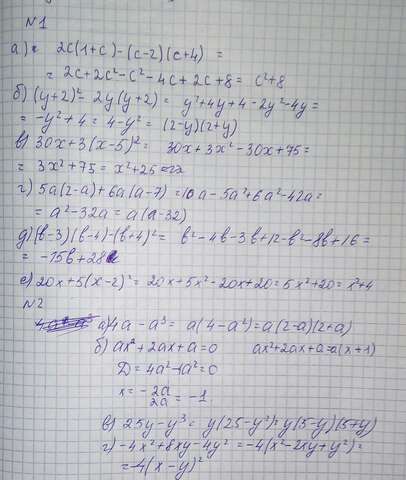 N1
а) 2c(1+c)-(c-2)(c+4) =
= 2c+2c²-c²-4c+2c+8 = c²+8
б) (y+2)²-2y(y+2) = y²+4y+4-2y²-4y=
= -y²+4 = 4-y² = (2-y)(2+y)
в) 30x+3(x-5)² = 30x+3x²-30x+75=
= 3x²+75 = x²+25
г) 5a(2-a)+6a(a-7)=10a-5a²+6a²-42a=
= a²-32a = a(a-32)
д) (b-3)(b-4)-(b+4)² = b²-4b-3b+12-b²-8b+16 =
= -15b+28
е) 20x+5(x-2)² = 20x+5x²-20x+20=5x²+20=x²+4
N2
а) 4a-a³ = a(4-a²)=a(2-a)(2+a)
б) ax²+2ax+a=0 ax²+2ax+a=a(x+1)
D = 4a²-4a²=0
x = -2a/2a = -1
в) 25y-y³ = y(25-y²)=y(5-y)(5+y)
г) -4x²+8xy-4y² = -4(x²-2xy+y²)=
= -4(x-y)²